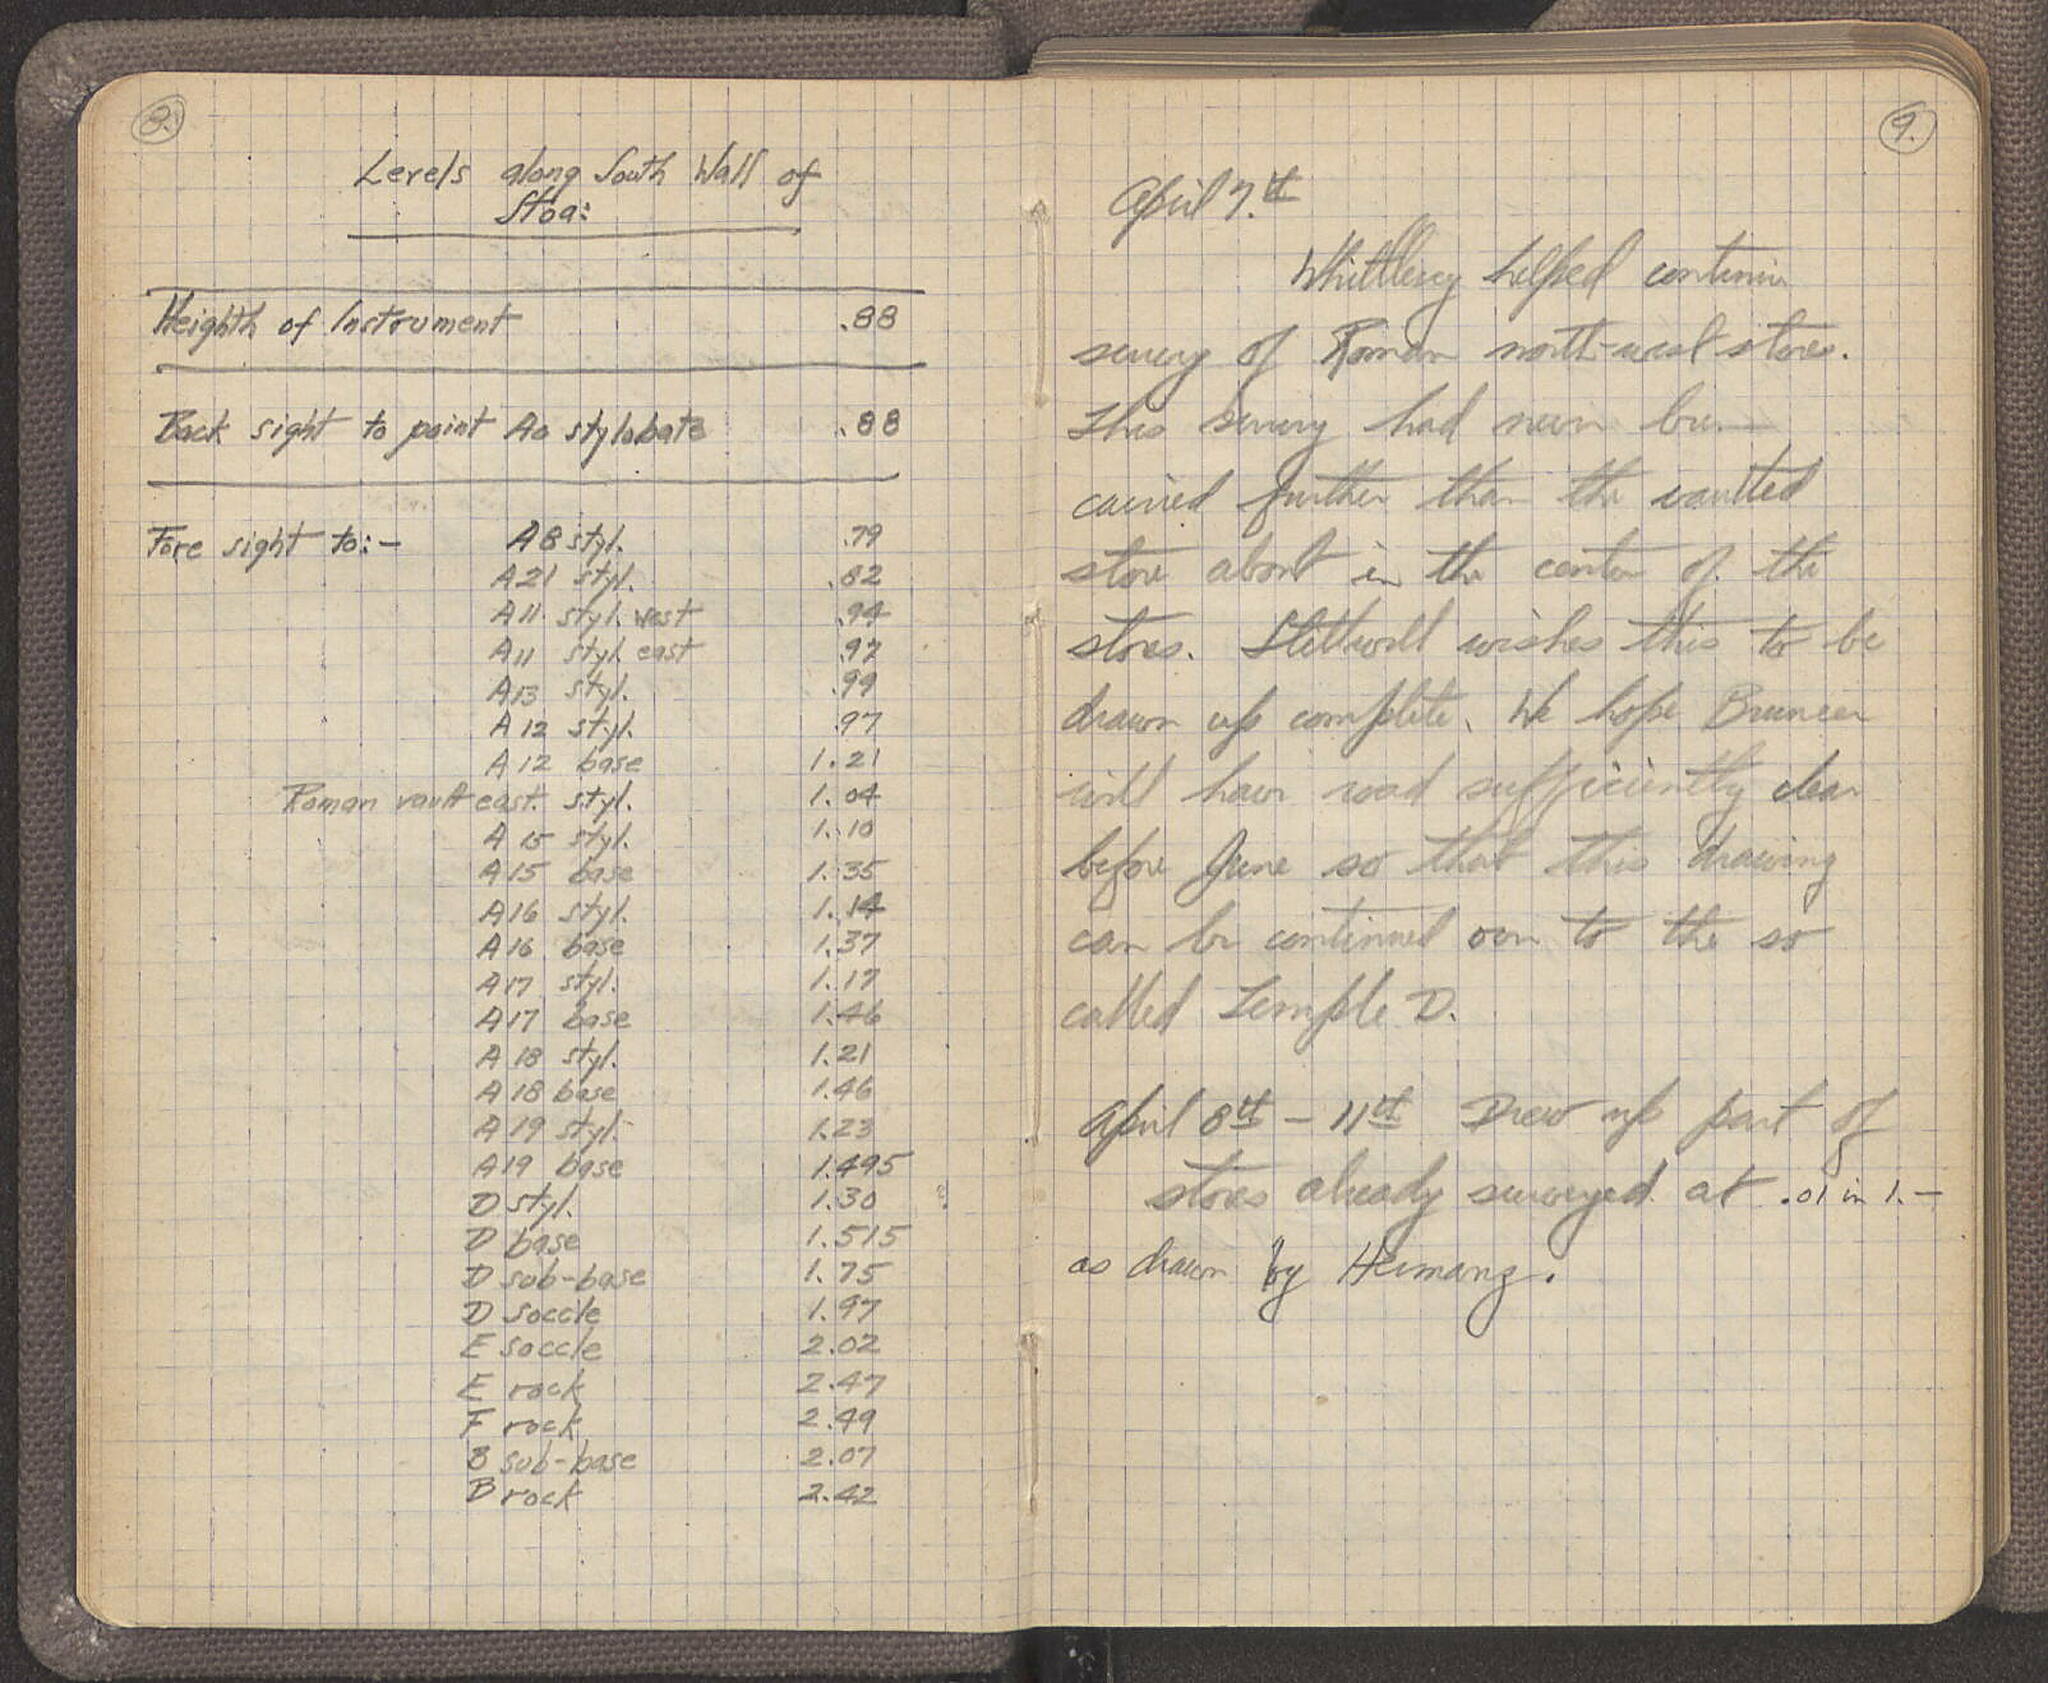 8.
Levels along South Wall of
Stoa:
Heighth of Instrument .88
Back sight to point A0 stylobate .88
Fore sight to:- A8 styl. .79
A21 styl. .82
A11 styl. west .94
A11 styl. east .97
A13 styl. .99
A12 styl. .97
A12 base 1.21
Roman vault east. styl. 1.04
A15 styl. 1.10
A15 base 1.35
A16 styl. 1.14
A16 base 1.37
A17 styl. 1.17
A17 base 1.46
A18 styl. 1.21
A18 base 1.46
A19 styl. 1.23
A19 base 1.495
D styl. 1.30
D base 1.515
D sub-base 1.75
D soccle 1.97
E soccle 2.02
E rock 2.47
F rock 2.49
B sub-base 2.07
B rock 2.42
9.
April 7.th
Whittlesey helped continue
survey of Roman north-west stores.
This survey had never been
carried further than the vaulted
store about in the center of the
stores. Stillwell wishes this to be
drawn up complete. We hope Bruneer
will have road sufficiently clear
before June so that this drawing
can be continued over to the so
called Temple D.
April 8th - 11th Drew up part of
stores already surveyed at .01 in 1.-
as drawn by Hermanz.